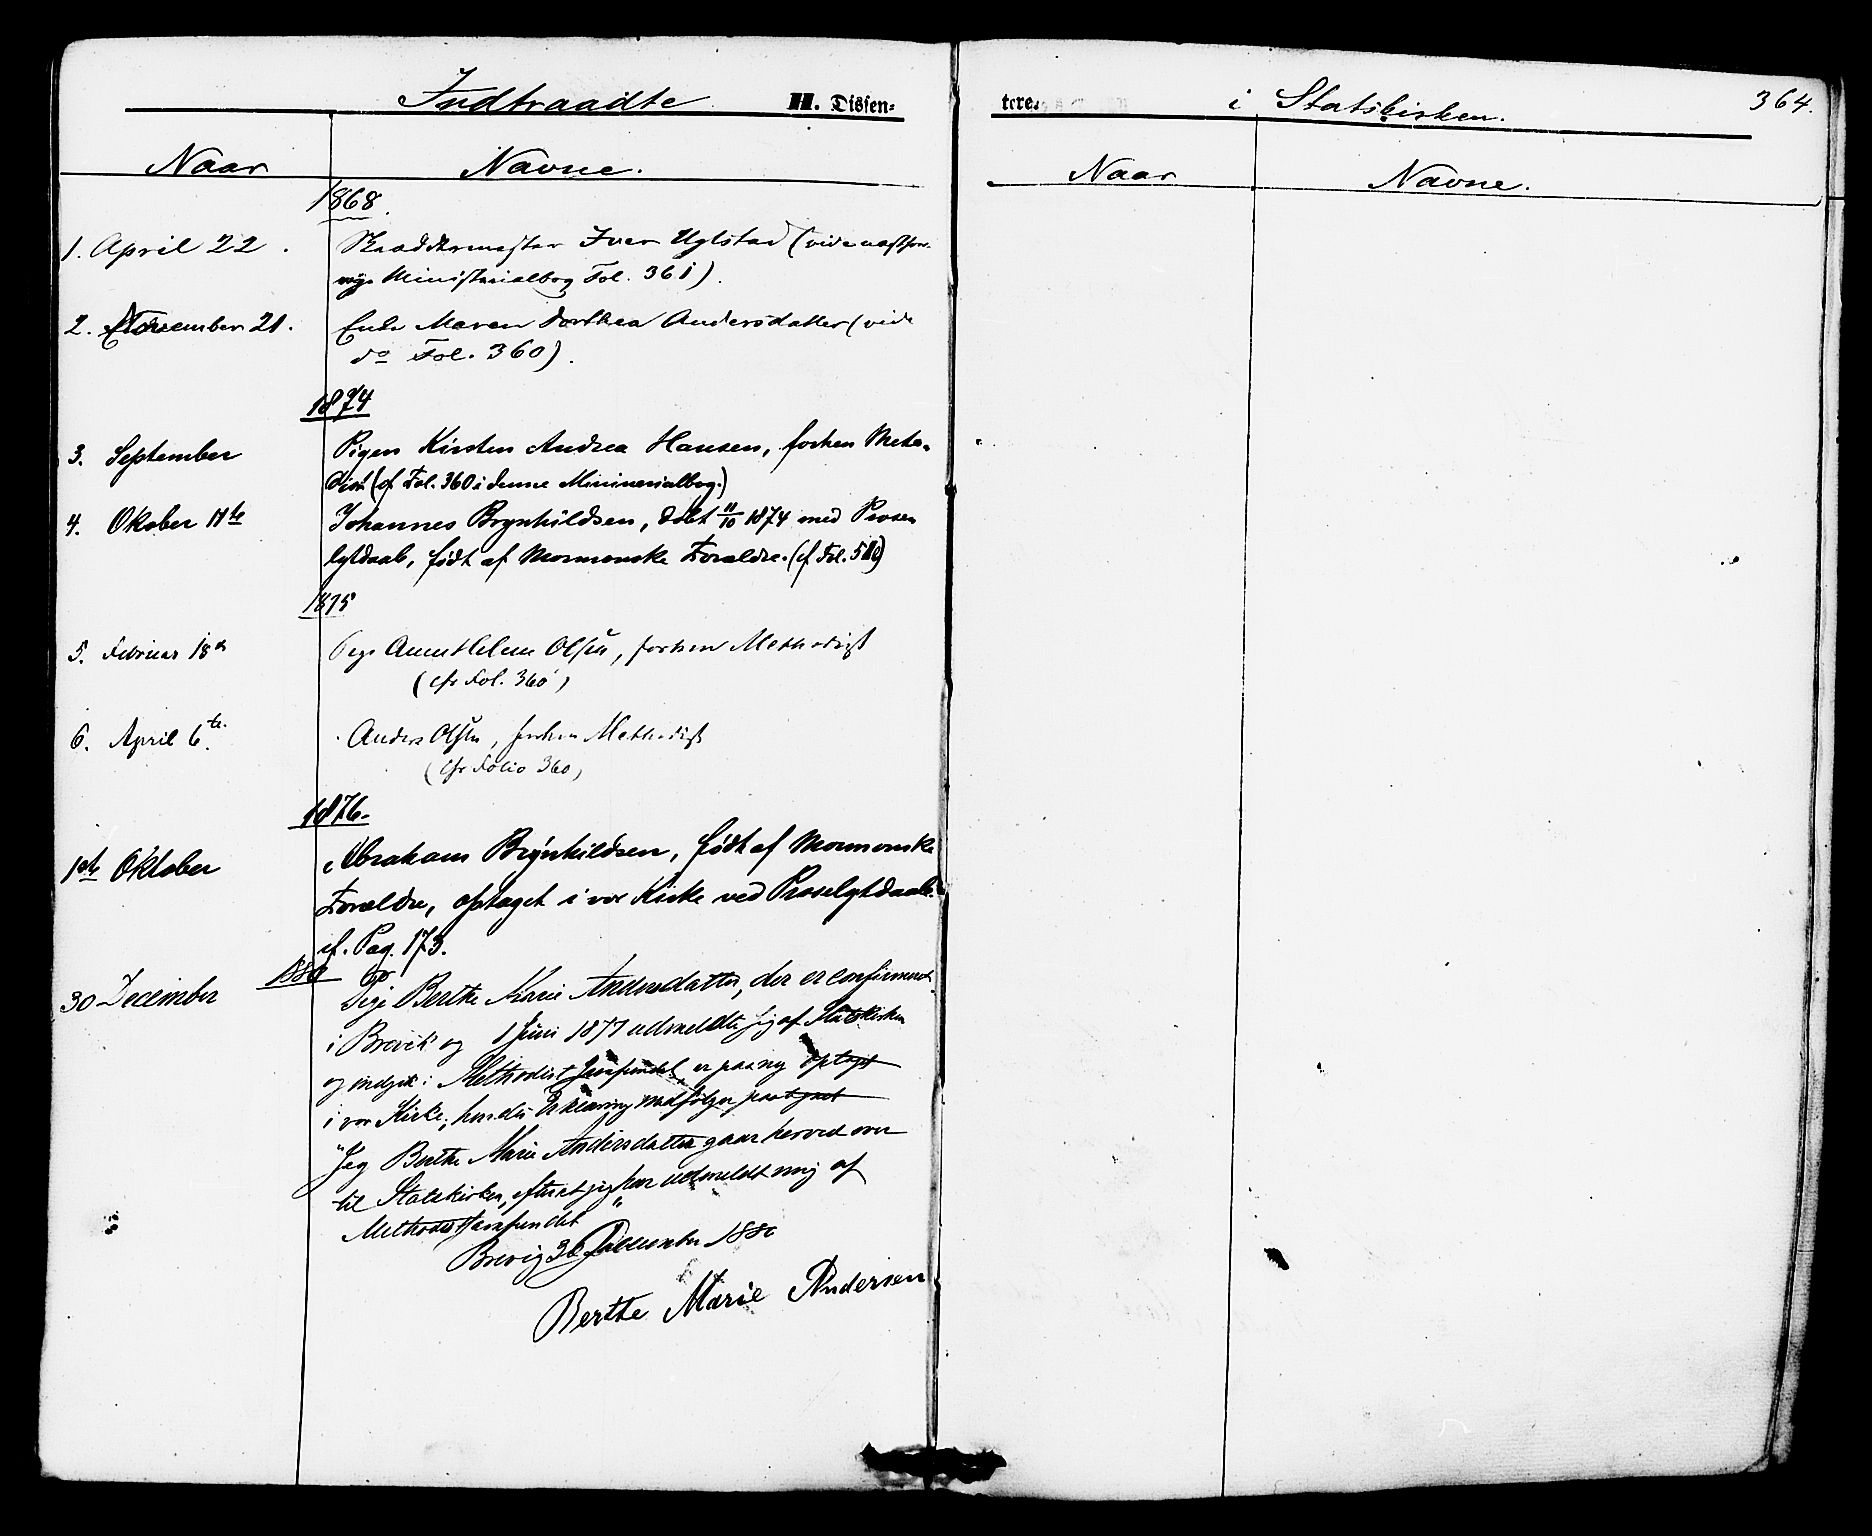 Indtraadte H. Dissen-
Naar Navne.
1868.
1. April 22. Skræddermester Iver Uglstad (vide næstfor-
rige Ministerialbog Fol. 361).
2. November 21. Enke Maren Dorthea Andersdatter (vide
do Fol. 360).
1874
3. September Pigen Kirsten Andrea Hansen, forhen Metho-
dist (cf Fol. 360 i denne Ministerialbog.)
4. Oktober 11te Johannes Brynhildsen, døbt 11/10 1874 med Prose-
lytdaab, født af Mormonske Forældre. (cf Fol.
1875
5. Februar 18de Pige Olsen, forhen Methodist
(cfr Fol. 360)
6. April 6te. Anders Olsen, forhen Methodist
(cfr Folio 360)
1876.
1ste Oktober Abraham Brynhildsen, født af Mormonske
Forældre, optaget i vor Kirke ved Proselytdaab.
cf. Pag. 173.
1880
30 December Pige Berthe Marie Andersdatter, der er confirmeret
i Brevik og 1 Juni 1877 udmeldte sig af Statskirken
og indgik i Methodist Samfundet, er paany optaget
i vor Kirke; hendes Erklæring medfølger
"Jeg Berthe Marie Andersdatter gaar herved over
til Statskirken, efterat jeg har udmeldt mig af
Methodistsamfundet"
Brevig 30 December 1880
Berthe Marie Andersen
teres i Statskirken. 364.
Naar Navne.